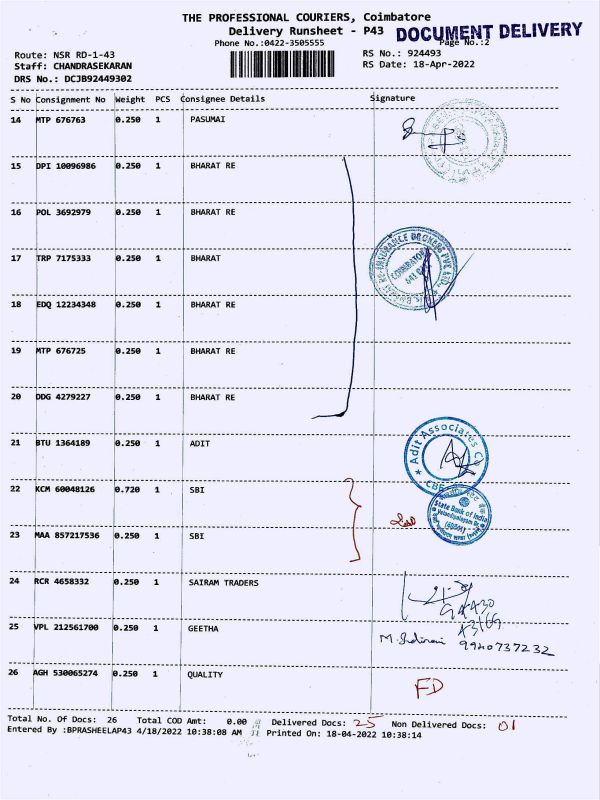 THE PROFESSIONAL COURIERS, Coimbatore
Delivery Runsheet - P43 DOCUMENT DELIVERY
Phone No.:0422-3505555 Page No.:2
Route: NSR RD-1-43 RS No.: 924493
Staff: CHANDRASEKARAN RS Date: 18-Apr-2022
DRS No.: DCJB92449302
S No Consignment No Weight PCS Consignee Details Signature
14 MTP 676763 0.250 1 PASUMAI
15 DPI 10096986 0.250 1 BHARAT RE
16 POL 3692979 0.250 1 BHARAT RE
17 TRP 7175333 0.250 1 BHARAT
18 EDQ 12234348 0.250 1 BHARAT RE
19 MTP 676725 0.250 1 BHARAT RE
20 DDG 4279227 0.250 1 BHARAT RE
21 BTU 1364189 0.250 1 ADIT
Adit Associates
22 KCM 60048126 0.720 1 SBI
State Bank of India
23 MAA 857217536 0.250 1 SBI
24 RCR 4658332 0.250 1 SAIRAM TRADERS
25 VPL 212561700 0.250 1 GEETHA
9940737232
26 AGH 530065274 0.250 1 QUALITY FD
Total No. Of Docs: 26 Total COD Amt: 0.00 Delivered Docs: 25 Non Delivered Docs: 01
Entered By :BPRASHEELAP43 4/18/2022 10:38:08 AM Printed On: 18-04-2022 10:38:14